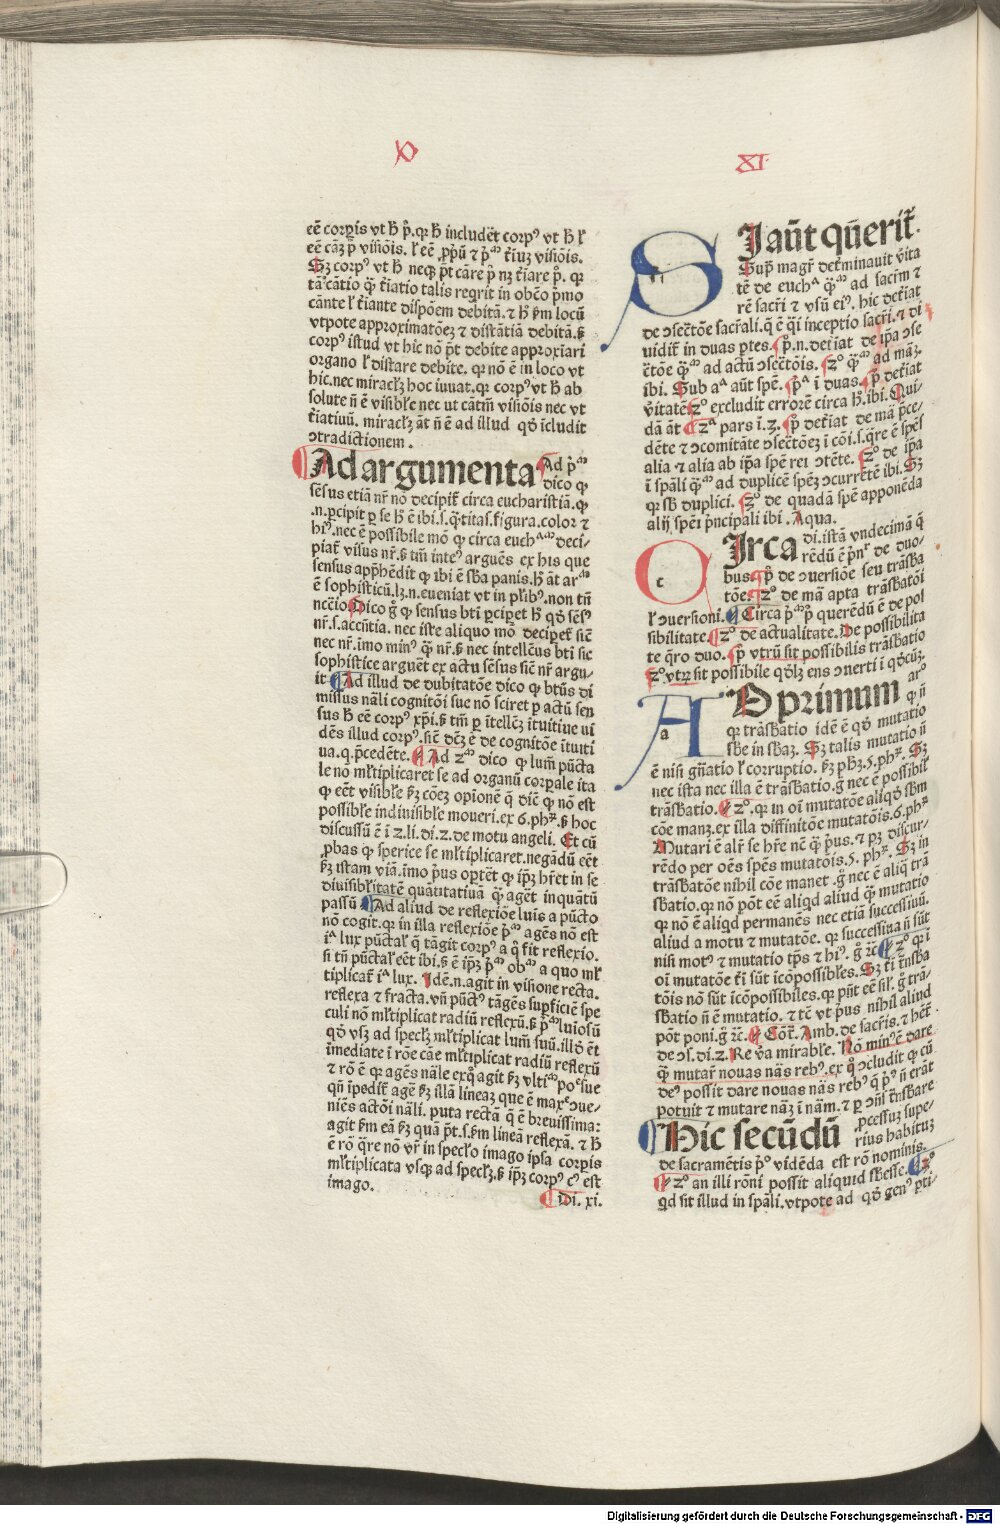 X
XI
eē corꝑis vt h̄ p̄.qꝛ h̄ includēt corpꝰ vt h̄ ł
eē cāꝫ p̄ visiōis. ł eē ꝓpꝛiū ⁊ p̄ᵐ t̄iuꝫ visiōis.
Sꝫ corpꝰ vt h̄ neqꝫ p̄t cāre p̄ nꝫ t̄iare p̄. qꝛ
tā cātio q̄ꝫ t̄iatio talis reqͥrit in obōo pͥmo
cānte ł t̄iante dispōem debitā. ⁊ h̄ ẜm locū
vtpote approximatōeꝫ ⁊ distātiā debitā.ẜ
corpꝰ istud vt hic nō p̄t debite approxīari
organo ł distare debite. qꝛ nō ē in loco vt
hic.nec miraclꝫ hoc iuuat.qꝛ corpꝰ vt h̄ ab
solute n̄ ē visibɫe nec ut cātīn visiōis nec vt
t̄iatiuū. miraclꝫ āt n̄ ē ad illud qđ īcludit
ↄtradictionem.
Ad argumenta Ad p̄ᵐ
dico ꝙ
sēsus etiā nr̄ nō decipit̄ circa eucharistiā.ꝙ
.n.ꝑcipit ꝑ se h̄ ē ibi.s.q̄titas.figura.color ⁊
hiꝰ.nec ē possibile mō ꝙ circa euchᵃᵐ deci-
piat̄ visus nr̄.ẜ tm̄ inteꝰ arguēs ex his que
sensus app̄hēdit ꝙ ibi ē sb̄a panis.h̄ āt arᵐ
ē sophisticū.lꝫ.n.eueniat vt in pɫibꝰ.non tn̄
nccīo Dico g̊ ꝙ sensus bti ꝑcipet h̄ qđ sēsꝰ
nr̄.s.accn̄tia. nec iste aliquo mō decipet̄ sic̄
nec nr̄.imo minꝰ q̄ꝫ nr̄.ẜ nec intellc̄us bti sic
sophistice arguēt ex actu sēsus sic̄ nr̄ argu-
it Ad illud de dubitatōe dico ꝙ btūs di
missus nāli cognitōi sue nō sciret ꝑ actū sen
sus h̄ eē corpꝰ xp̄i.ẜ tm̄ ꝑ ītellc̄ꝫ ītuitiue vi
dēs illud corpꝰ.sic̄ dc̄ꝫ ē de cognitōe ītuiti
ua.q.p̄cedēte. Ad zᵐ dico ꝙ lum̄ pūcta
le nō mɫtiplicaret se ad organū corꝑale ita
ꝙ eēt visibɫe ẜꝫ cōeꝫ opionē q̄ dic̄ ꝙ nō est
possibɫe indiuisibɫe moueri.ex 6.phꝫ.ẜ hoc
discussū ē ī z.li.di.z.de motu angeli. Et cū
ꝓbas ꝙ sperice se mɫtiplicaret.negādū eēt
ẜꝫ istam viā.imo pͥus oꝑtēt ꝙ ipꝫ hr̄et in se
diuisibɫitatē quātitatiuā q̄ꝫ agēt inquātū
passū Ad aliud de reflexiōe luīs a pūcto
nō cogit.qꝛ in illa reflexiōe p̄ᵐ agēs nō est
iᵃ lux pūctaɫ q̄ tāgit corpꝰ a q̊ fit reflexio.
si tn̄ pūctaɫ eēt ibi.ẜ ē ipꝫ p̄ᵐ obᵐ a quo mɫ
tiplicat̄ iᵃ lux. Idē.n.agit in visione recta.
reflexa ⁊ fracta.vn̄ pūctꝰ tāgēs suꝑficiē spe
culi nō mɫtiplicat radiū reflexū.ẜ p̄ᵐ luiosū
qđ vsqꝫ ad specɫꝫ mɫtiplicat lum̄ suū.illđ ēt
īmediate ī rōe cāe mɫtiplicat radiū reflexū
⁊ rō ē qꝛ agēs nāle exq̊ agit ẜꝫ vltīᵐ poᵉ sue
qn̄ īpedit̄ agē ẜꝫ illā lineaꝫ que ē maxᵉ ↄue-
niēs actōi nāli. puta rectā q̄ ē breuissima:
agit ẜm eā ẜꝫ quā p̄t.s.ẜm lineā reflexā. ⁊ h̄
ē rō q̄re nō vr̄ in specɫo imago ipsa corꝑis
mɫtiplicata vsqꝫ ad specɫꝫ.ẜ ipꝫ corpꝰ cꝰ est
imago.
Di. xi.
SI aūt qn̄erit̄.
Supͣ magr̄ det̄minauit v̄ita
tē de euchᵃ q̄ᵐ ad sacr̄m ⁊
rē sacr̄i ⁊ vsū eiꝰ. hic det̄iat
de ↄsect̄ōe sacr̄ali.q̄ ē q̄i inceptio sacr̄i.⁊ di
uidit̄ in duas ꝑtes. p̄.n.det̄iat de ip̄a ↄse
ct̄ōe q̄ᵐ ad actū ↄsect̄ōis. zº q̄ᵐ ad māꝫ.
ibi. Sub aᵃ aūt spē. pᵃ ī duas. p̄ det̄iat
v̄itatē zº excludit errorē circa h̄.ibi. Qui-
dā āt zᵃ pars ī.3. p̄ det̄iat de mā p̄ce-
dēte ⁊ ↄcomitāte ↄsect̄ōeꝫ ī cōi.s.q̄re ē spēs
alia ⁊ alia ab ip̄a spē rei ↄtēte. zº de ip̄a
ī spāli q̄ᵐ ad duplicē spēꝫ ↄcurrētē ibi. Sꝫ
qꝛ sb̄ duplici. zº de quadā spē apponēda
alij spēi pͥncipali ibi. Aqua.
CIrca di.istā vndecimā q̄
rēdū ē p̄nr̄ de duo-
bus. p̊ de ↄuersiōe seu trāsb̄a
tōe. zº de mā apta trāsb̄atōi
ł ↄuersioni. Circa p̄ᵐ p̄ querēdū ē de pos
sibilitate. zº de actualitate. De possibilita
te q̄ro duo. p̄ vtrū sit possibilis trāsb̄atio
zº.vtrꝫ sit possibile qđlꝫ ens ↄuerti ī qđcūqꝫ.
AD primum arº
ꝙ n̄
qꝛ trāsb̄atio idē ē qđ mutatio
sb̄e in sb̄aꝫ. Sꝫ talis mutatio n̄
ē nisi gn̄atio ł corruptio. ẜꝫ phꝫ.5.phꝫ. Sꝫ
nec ista nec illa ē trāsb̄atio.g̊ nec ē possibiɫ
trāsb̄atio. zº.qꝛ in oī mutatōe aliqđ sb̄m
cōe manꝫ.ex illa diffinitōe mutatōis.6.phꝫ
Mutari ē alr̄ se hr̄e nc̄ q̄ꝫ pͥus.⁊ pꝫ discur-
rēdo per oēs spēs mutatōis.5. phꝫ. Sꝫ in
trāsb̄atōe nihil cōe manet .g̊ nec ē aliq̄ trā
sb̄atio.qꝛ nō pōt eē aliqđ aliud q̄ꝫ mutatio
qꝛ nō ē aliqđ permanēs nec etiā successiuū.
aliud a motu ⁊ mutatōe. qꝛ successiua n̄ sūt
nisi motꝰ ⁊ mutatio tp̄s ⁊ hiꝰ. g̊ ⁊c zº qꝛ ī
oī mutatōe t̄i sūt īcōpossibɫes. Sꝫ t̄i t̄nsb̄a
tōis nō sūt īcōpossibiles.qꝛ pn̄t eē sīɫ. g̊ trā-
sb̄atio n̄ ē mutatio. ⁊ tē vt pͥus nihil aliud
pōt poni.g̊ ⁊c. Cōt̄. Amb. de sacr̄is. ⁊ het̄
de ↄs.di.z. Re v̄a mirabɫe. Nō minꝰ ē dare
q̄ꝫ mutar̄ nouas nās rebꝰ.ex q̊ ↄcludit ꝙ cū
deꝰ possit dare nouas nās rebꝰ q̄ pͥꝰ n̄ erāt
potuit ⁊ mutare nāꝫ ī nām.⁊ ꝑ ↄn̄s t̄nsb̄are
Hic secūdū ꝓcessuꝫ supe-
rius habituꝫ
de sacramētis p̊ vidēda est rō nominis.
zº an illi rōni possit aliquid sb̄esse. zº
qd sit illud in spāli.vtpote ad qđ genꝰ ꝑti-
Digitalisierung gefördert durch die Deutsche Forschungsgemeinschaft - DFG